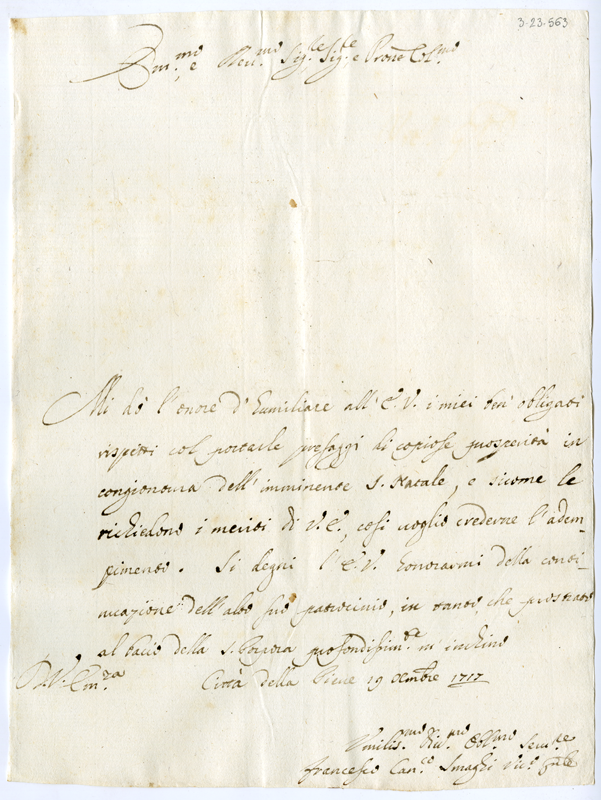 3-23-563
Em.mo, e Rev.mo Sig.re Sig.re e Prone Col.mo
Mi dò l'onore d'humiliare all'E.V. i miei più obligati
rispetti col portarle presaggi di copiose prosperità in
congiontura dell'imminente S. Natale, e sicome le
richiedono i meriti di V.E., così voglio crederne l'adem-
pimento. Si degni l'E.V. honorarmi della conti-
nuazione dell'alto suo patrocinio, in tanto che prostrato
al bacio della S. Porpora profondissim.te m'inchino
D.V. Em.za
Città della Pieve 19 Xembre 1717
Umilis.mo Div.mo Obl.mo Serv.re
Francesco Can.co Smaghi Vic.o Gnle